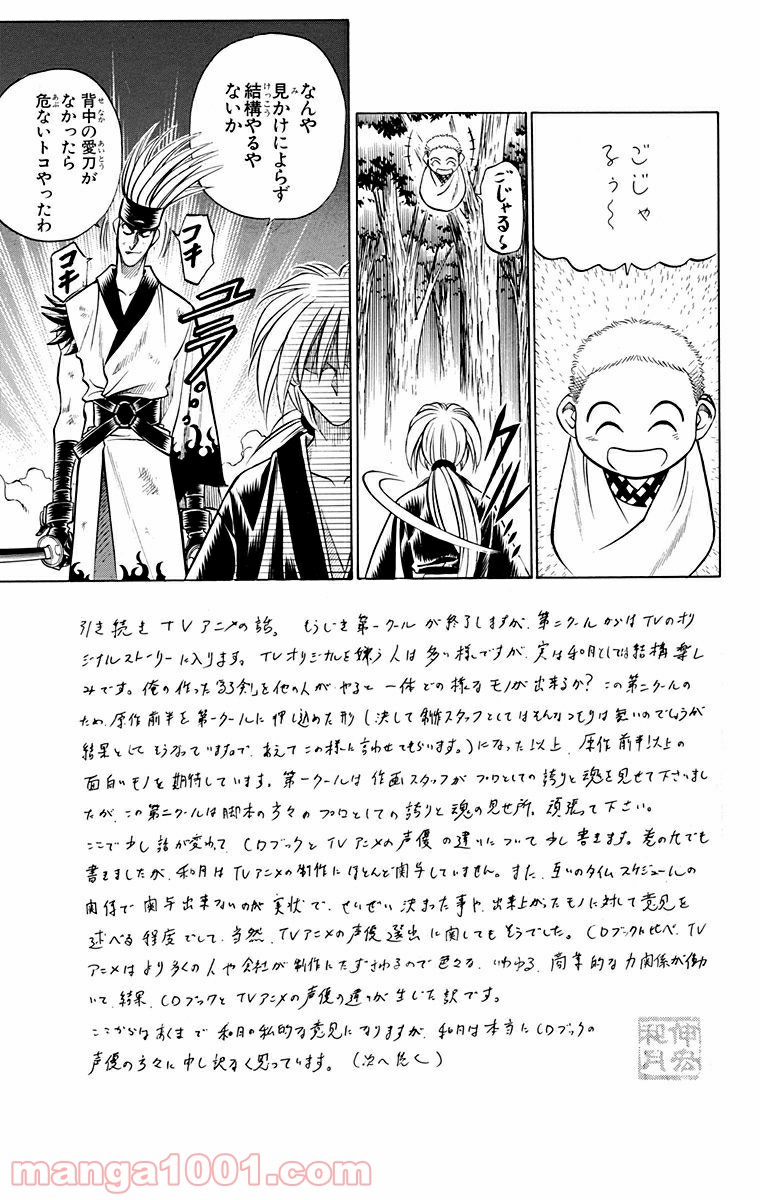 ごじゃ
るぅ〜
ごじゃる〜
クルッ
なんや
見かけによらず
結構やるや
ないか
背中の愛刀が
なかったら
危ないトコやったわ
コキ
コキ
ユラ
引き続きTVアニメの話。もうじき第一クールが終了しますが、第二クールからはTVのオリ
ジナルストーリーに入ります。TVオリジナルを嫌う人は多い様ですが、実は和月としては結構楽し
みです。俺の作った『るろ剣』を他の人がやると一体どの様なモノが出来るか?この第二クールの
ため、原作前半を第一クールに押し込めた形(決して制作スタッフとしてはそんなつもりは無いのでしょうが
結果としてそうなっていますので、あえてこの様に言わせてもらいます。)になった以上、原作前半以上の
面白いモノを期待しています。第一クールは作画スタッフがプロとしての誇りと魂を見せて下さいまし
たが、この第二クールは脚本の方々のプロとしての誇りと魂の見せ所。頑張って下さい。
ここで少し話が変わって、CDブックとTVアニメの声優の違いについて少し書きます。巻の九でも
書きましたが、和月はTVアニメの制作にほとんど関与していません。また、互いのタイムスケジュールの
関係で関与出来ないのが実状で、せいぜい決まった事や、出来上がったモノに対して意見を
述べる程度でして、当然、TVアニメの声優選出に関してもそうでした。CDブックに比べ、TV
アニメはより多くの人や会社が制作にたずさわるので色々な、いわゆる、商業的な力関係が働
いて、結果、CDブックとTVアニメの声優の違いが生じた訳です。
ここからはあくまで和月の私的な意見になりますが、和月は本当にCDブックの
声優の方々に申し訳なく思っています。(次へ続く)
和月
伸宏
manga1001.com